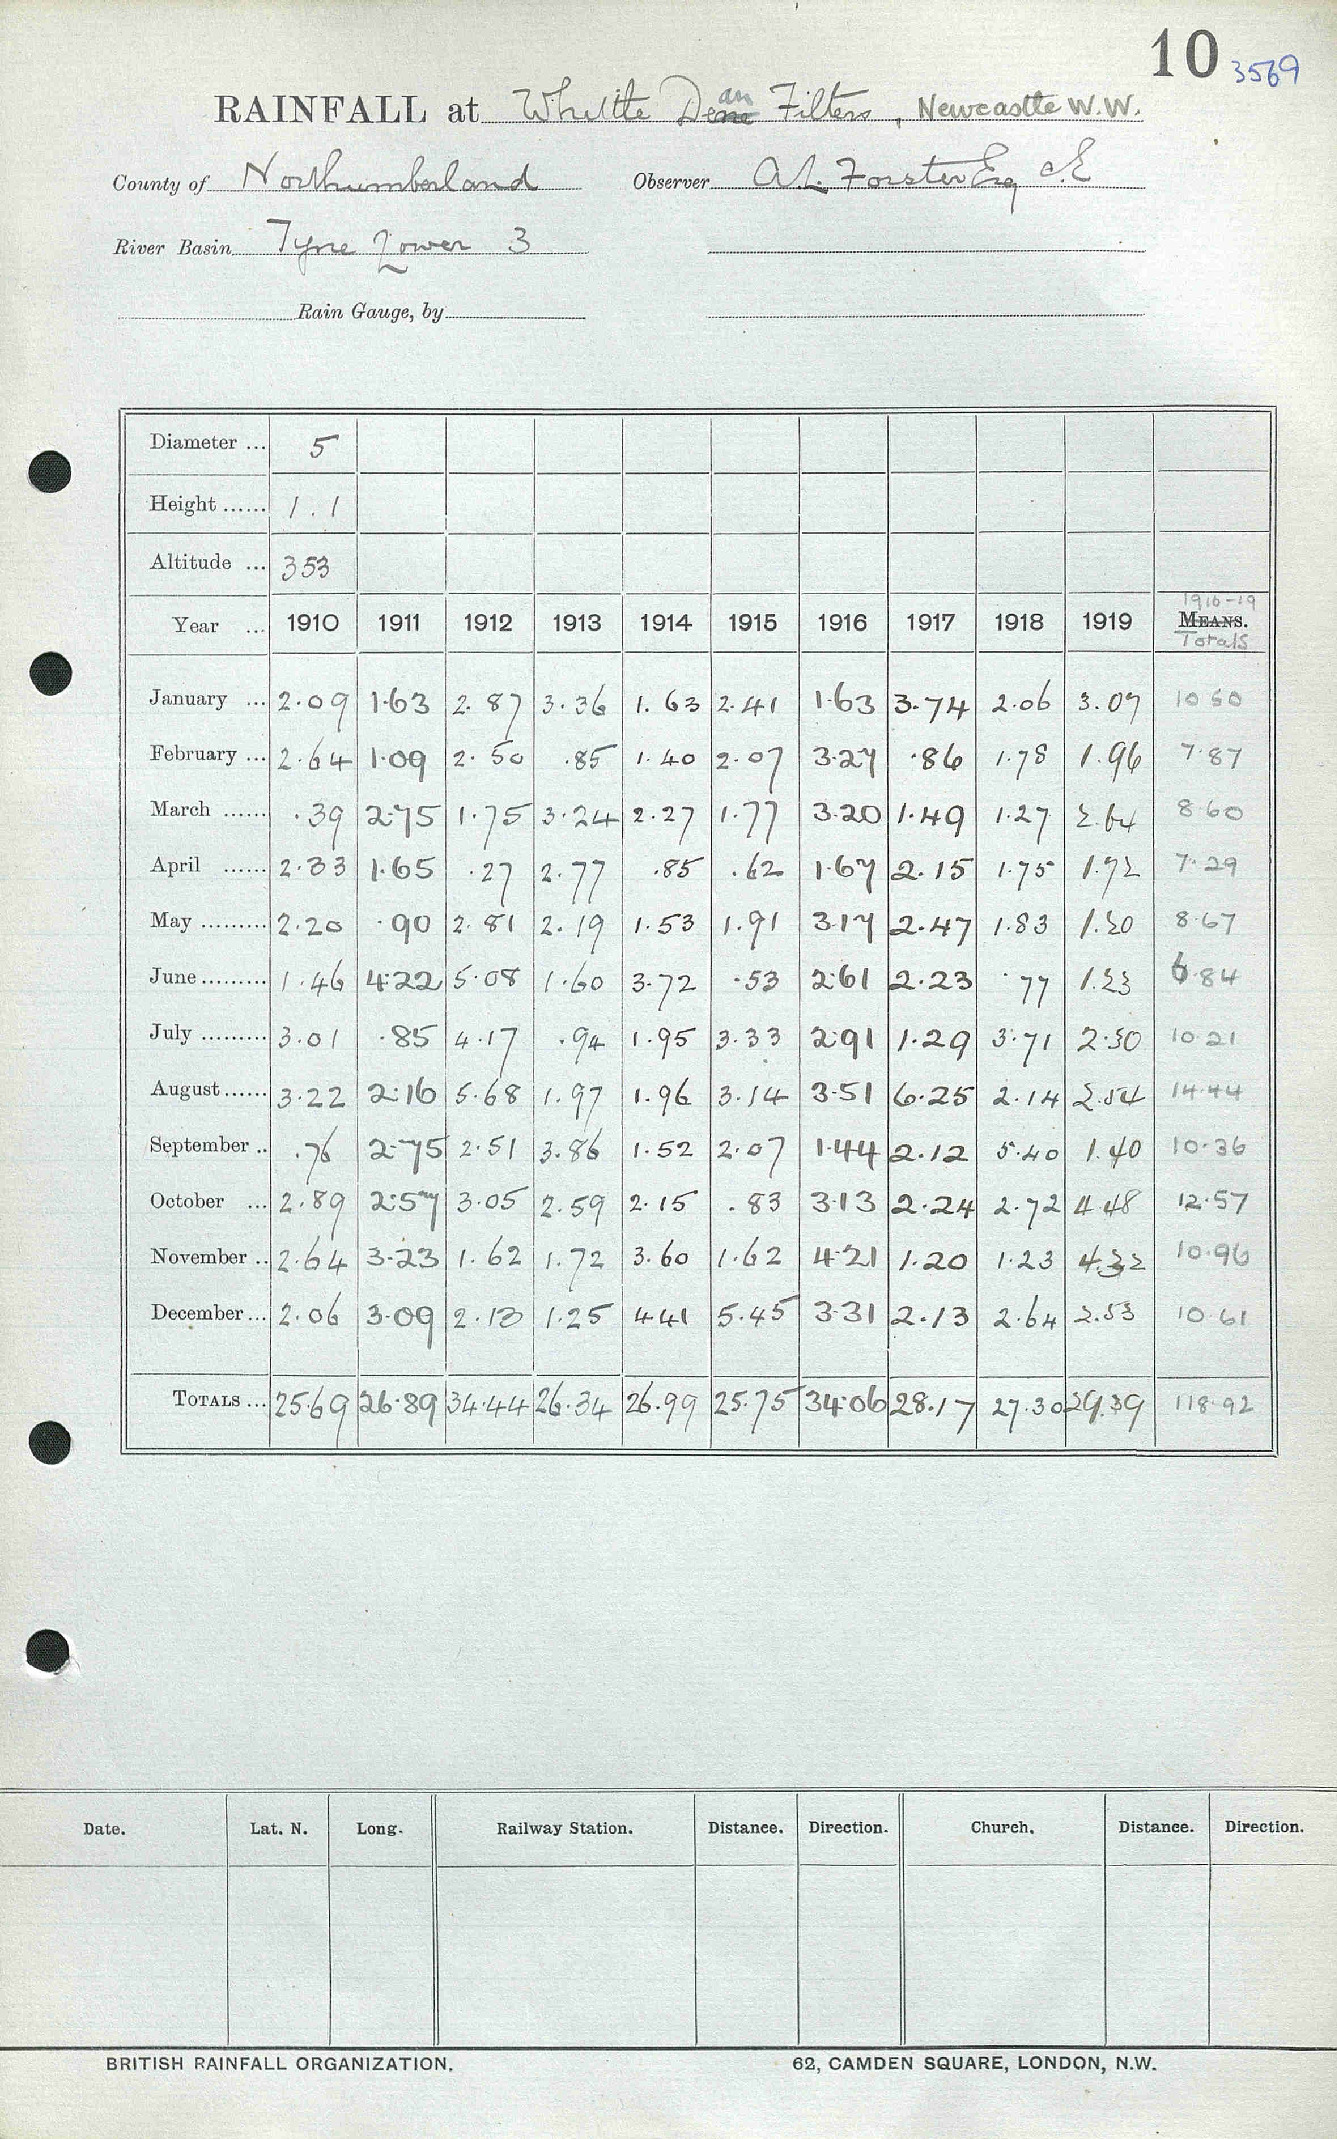 10 3569
RAINFALL at Whittle Dene an Filters, Newcastle W.W.
County of Northumberland Observer A.L. Forster Esq C.E
River Basin Tyne Lower 3
Rain Gauge, by
Diameter ... 5
Height ...... 1.1
Altitude ... 353
1916-19
Year ... 1910 1911 1912 1913 1914 1915 1916 1917 1918 1919 MEANS.
Totals
January ... 2.09 1.63 2.87 3.36 1.63 2.41 1.63 3.74 2.06 3.07 10.50
February ... 2.64 1.09 2.50 .85 1.40 2.07 3.27 .86 1.78 1.96 7.87
March ...... .39 2.75 1.75 3.24 2.27 1.77 3.20 1.49 1.27 2.64 8.60
April ...... 2.33 1.65 .27 2.77 .85 .62 1.67 2.15 1.75 1.72 7.29
May ......... 2.20 .90 2.81 2.19 1.53 1.91 3.17 2.47 1.83 1.20 8.67
June ......... 1.46 4.22 5.08 1.60 3.72 .53 2.61 2.23 .77 1.23 6.84
July ......... 3.01 .85 4.17 .94 1.95 3.33 2.91 1.29 3.71 2.30 10.21
August ...... 3.22 2.16 5.68 1.97 1.96 3.14 3.51 6.25 2.14 2.54 14.44
September .. .76 2.75 2.51 3.86 1.52 2.07 1.44 2.12 5.40 1.40 10.36
October ... 2.89 2.57 3.05 2.59 2.15 .83 3.13 2.24 2.72 4.48 12.57
November .. 2.64 3.23 1.62 1.72 3.60 1.62 4.21 1.20 1.23 4.32 10.96
December ... 2.06 3.09 2.13 1.25 4.41 5.45 3.31 2.13 2.64 2.53 10.61
TOTALS ... 25.69 26.89 34.44 26.34 26.99 25.75 34.06 28.17 27.30 29.39 118.92
Date. Lat. N. Long. Railway Station. Distance. Direction. Church. Distance. Direction.
BRITISH RAINFALL ORGANIZATION. 62, CAMDEN SQUARE, LONDON, N.W.